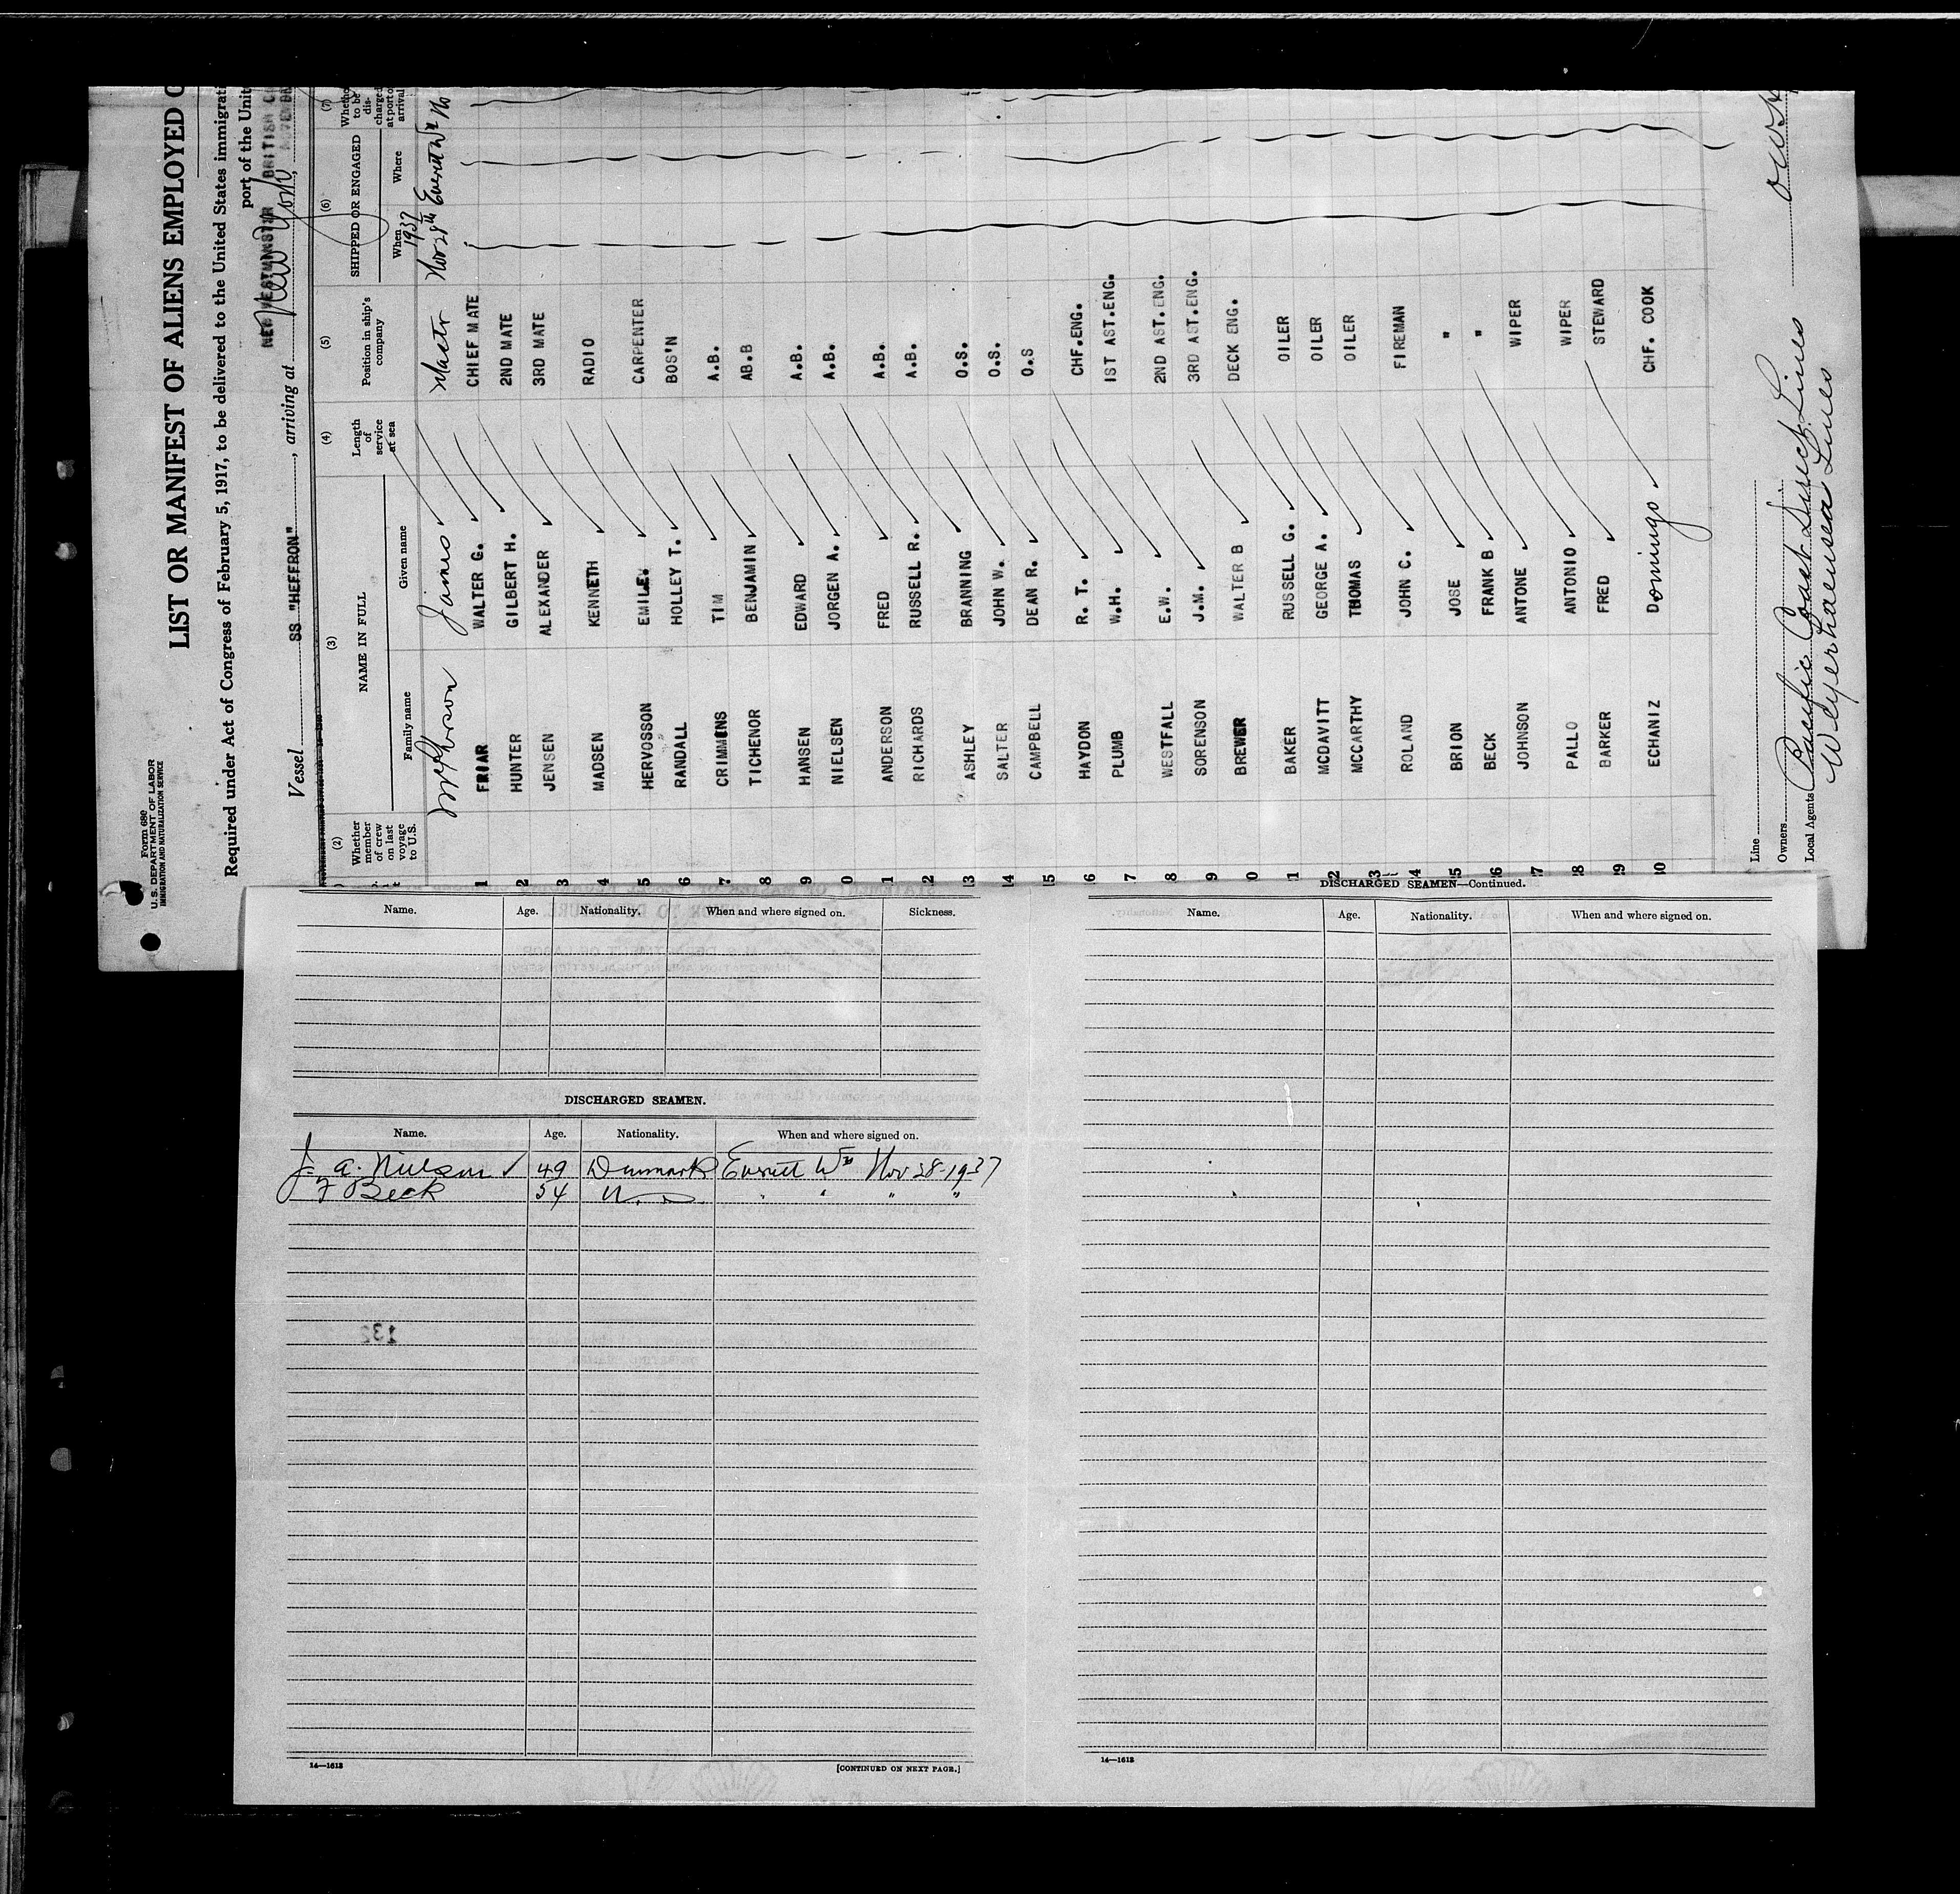 Form 680
U. S. DEPARTMENT OF LABOR
IMMIGRATION AND NATURALIZATION SERVICE
LIST OR MANIFEST OF ALIENS EMPLOYED O
Required under Act of Congress of February 5, 1917, to be delivered to the United States immigrati
port of the Unit
NEW WESTMINSTER BRITISH C
Vessel SS "HEFFRON" , arriving at New York ,
(2) (3) (4) (5) (6) (7)
Whether member of crew on last voyage to U.S.
NAME IN FULL
Family name Given name
Length of service at sea
Position in ship's company
SHIPPED OR ENGAGED
When Where
Whethe to be dis- charged at port o arrival
1937
James Master Nov 28th Everett Wn No
1 FRIAR WALTER G. CHIEF MATE
2 HUNTER GILBERT H. 2ND MATE
3 JENSEN ALEXANDER 3RD MATE
4 MADSEN KENNETH RADIO
5 HERVOSSON EMILE. CARPENTER
6 RANDALL HOLLEY T. BOS'N
7 CRIMMENS TIM A.B.
8 TICHENOR BENJAMIN AB.B
9 HANSEN EDWARD A.B.
0 NIELSEN JORGEN A. A.B.
1 ANDERSON FRED A.B.
2 RICHARDS RUSSELL R. A.B.
3 ASHLEY BRANNING O.S.
4 SALTER JOHN W. O.S.
5 CAMPBELL DEAN R. O.S
6 HAYDON R. T. CHF.ENG.
7 PLUMB W.H. 1ST AST.ENG.
8 WESTFALL E.W. 2ND AST.ENG.
9 SORENSON J.M. 3RD AST.ENG.
0 BREWER WALTER B DECK ENG.
1 BAKER RUSSELL G. OILER
2 MCDAVITT GEORGE A. OILER
3 MCCARTHY THOMAS OILER
4 ROLAND JOHN C. FIREMAN
5 BRION JOSE "
6 BECK FRANK B "
7 JOHNSON ANTONE WIPER
8 PALLO ANTONIO WIPER
9 BARKER FRED STEWARD
0 ECHANIZ Domingo CHF. COOK
Line
Owners Pacific Coast Direct Lines
Local Agents Weyerhaeuser Lines
Name. Age. Nationality. When and where signed on. Sickness.
DISCHARGED SEAMEN.
Name. Age. Nationality. When and where signed on.
J. A. Nielsen 49 Denmark Everett Wn Nov 28-1937
F Beck 54 " " " "
14—1613 [CONTINUED ON NEXT PAGE.]
DISCHARGED SEAMEN—Continued.
Name. Age. Nationality. When and where signed on.
14—1613